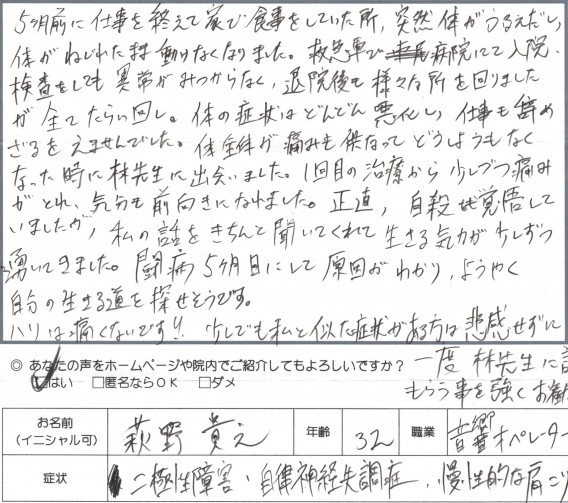 5ヶ月前に仕事を終えて家で食事をしていた所、突然体がうるえだし、
体がねじれたまま動けなくなりました。救急車で病院にて入院、
検査をしても異常がみつからなく、退院後も様々な所を回りました
が全てたらい回し。体の症状はどんどん悪化し、仕事も辞め
ざるをえませんでした。体全体が痛みも併なってどうしようもなく
なった時に林先生に出会いました。1回目の治療から少しづつ痛み
がとれ、気分も前向きになれました。正直、自殺も覚悟して
いましたが、私の話をきちんと聞いてくれて生きる気力が少しずつ
湧いてきました。闘病5ヶ月目にして原因がわかり、ようやく
自分の生きる道を探せそうです。
ハリは痛くないです!! 少しでも私と似た症状がある方は悲感せずに
一度林先生に
もらう事を強くお勧
◎ あなたの声をホームページや院内でご紹介してもよろしいですか?
☑はい □匿名ならOK □ダメ
お名前
(イニシャル可)
萩野 貴之
年齢
32
職業
音響オペレーター
症状
二極性障害、自律神経失調症、慢性的な肩こり